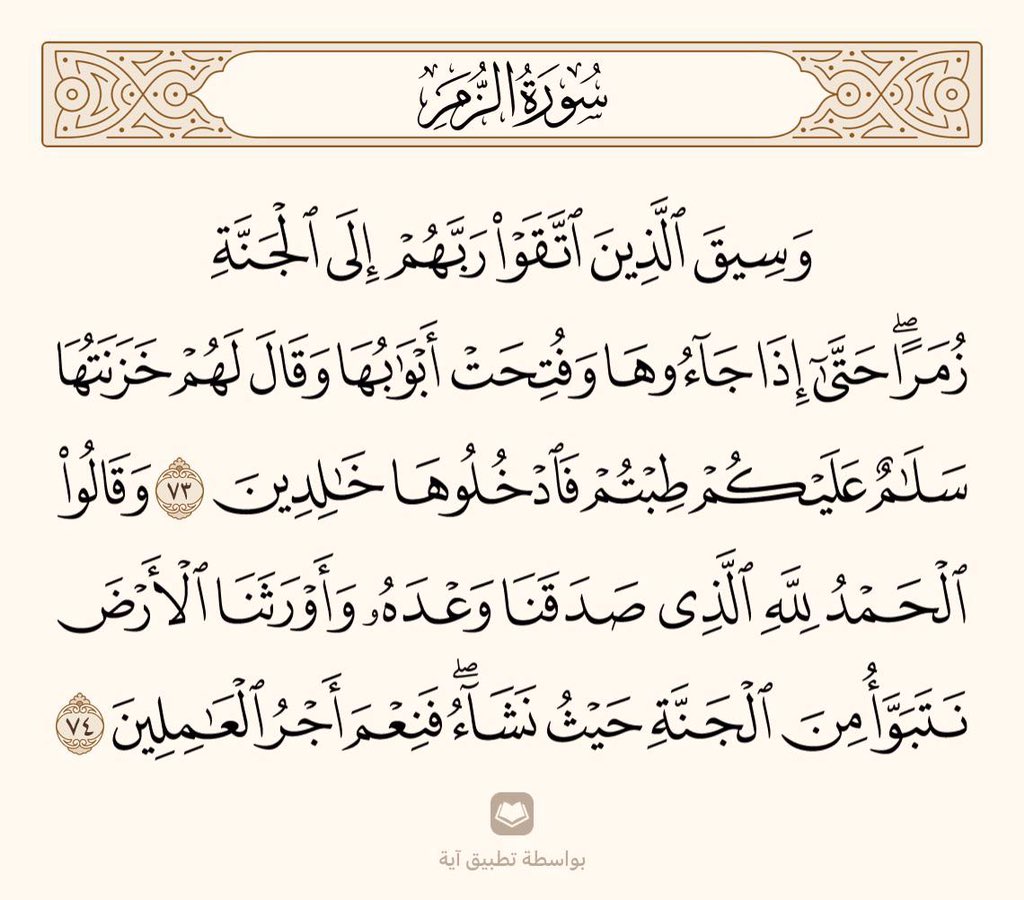 سُورَةُ الزُّمَرِ
وَسِيقَ ٱلَّذِينَ ٱتَّقَوْا۟ رَبَّهُمْ إِلَى ٱلْجَنَّةِ
زُمَرًاۖ حَتَّىٰٓ إِذَا جَآءُوهَا وَفُتِحَتْ أَبْوَٰبُهَا وَقَالَ لَهُمْ خَزَنَتُهَا
سَلَـٰمٌ عَلَيْكُمْ طِبْتُمْ فَٱدْخُلُوهَا خَـٰلِدِينَ ٧٣ وَقَالُوا۟
ٱلْحَمْدُ لِلَّهِ ٱلَّذِى صَدَقَنَا وَعْدَهُۥ وَأَوْرَثَنَا ٱلْأَرْضَ
نَتَبَوَّأُ مِنَ ٱلْجَنَّةِ حَيْثُ نَشَآءُۖ فَنِعْمَ أَجْرُ ٱلْعَـٰمِلِينَ ٧٤
بواسطة تطبيق آية